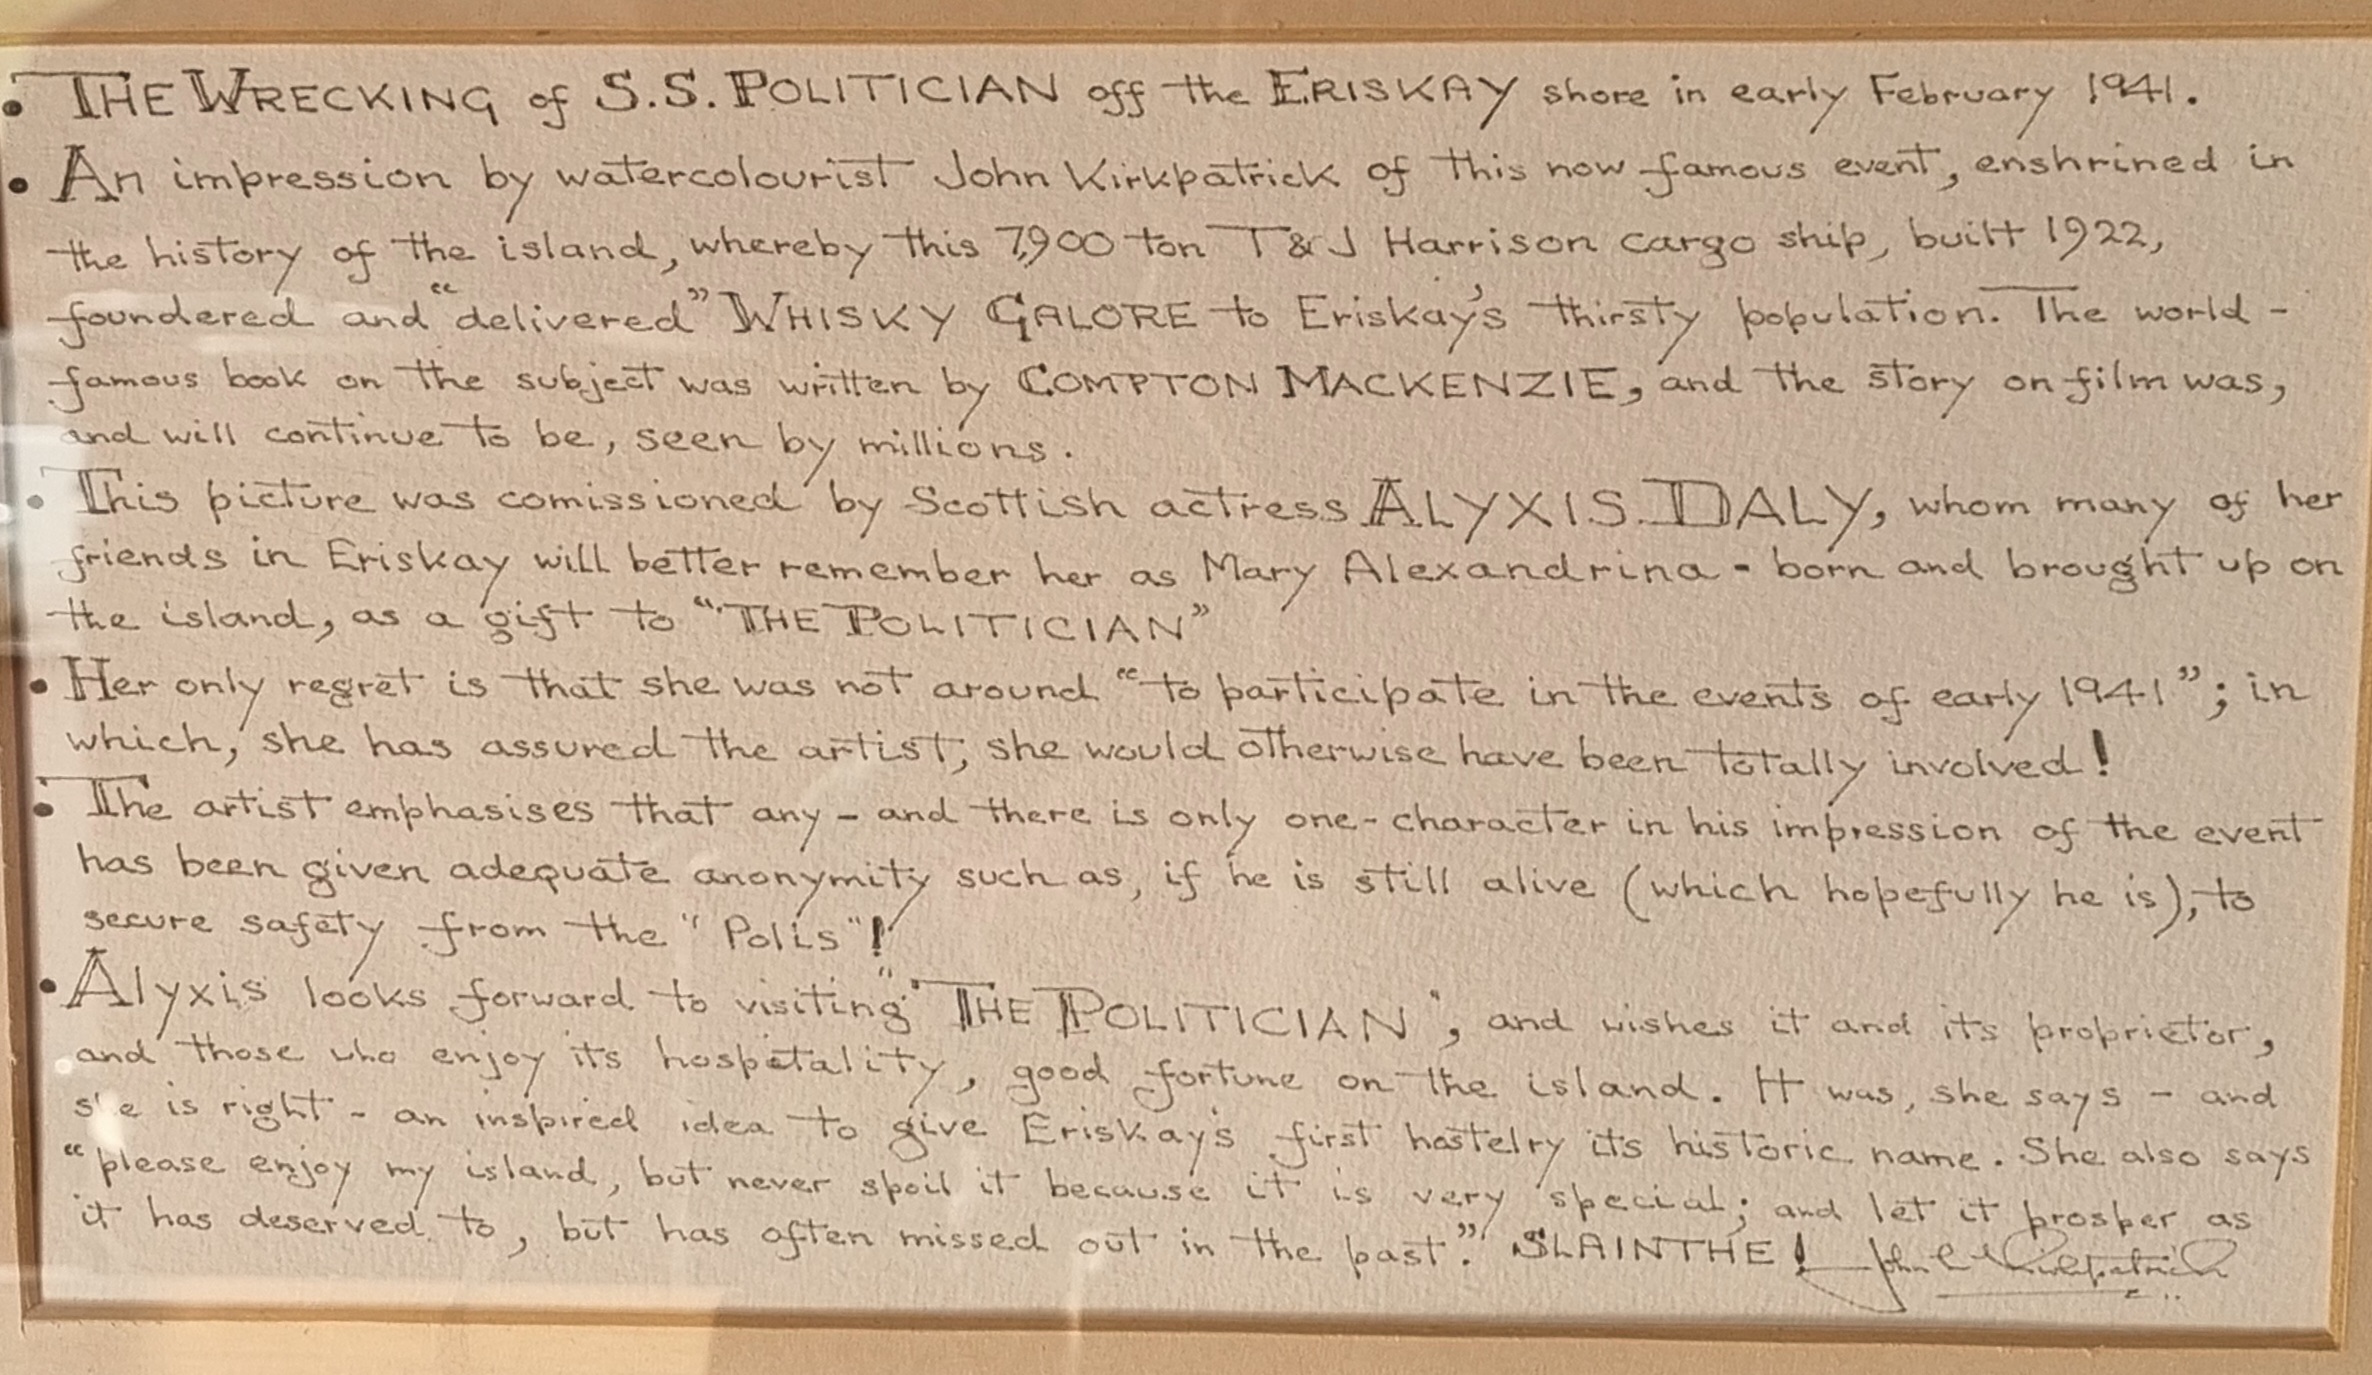 • THE WRECKING of S.S. POLITICIAN off the ERISKAY shore in early February 1941.
• An impression by watercolourist John Kirkpatrick of this now famous event, enshrined in
the history of the island, whereby this 7,900 ton T & J Harrison cargo ship, built 1922,
foundered and "delivered" WHISKY GALORE to Eriskay's thirsty population. The world-
famous book on the subject was written by COMPTON MACKENZIE, and the story on film was,
and will continue to be, seen by millions.
• This picture was comissioned by Scottish actress ALYXIS DALY, whom many of her
friends in Eriskay will better remember her as Mary Alexandrina - born and brought up on
the island, as a gift to "THE POLITICIAN"
• Her only regret is that she was not around "to participate in the events of early 1941"; in
which, she has assured the artist, she would otherwise have been totally involved!
• The artist emphasises that any - and there is only one - character in his impression of the event
has been given adequate anonymity such as, if he is still alive (which hopefully he is), to
secure safety from the "Polis"!
• Alyxis looks forward to visiting "THE POLITICIAN", and wishes it and its proprietor,
and those who enjoy its hospitality, good fortune on the island. It was, she says - and
she is right - an inspired idea to give Eriskay's first hostelry its historic name. She also says
"please enjoy my island, but never spoil it because it is very special; and let it prosper as
it has deserved to, but has often missed out in the past." SLAINTHE! John Kirkpatrick